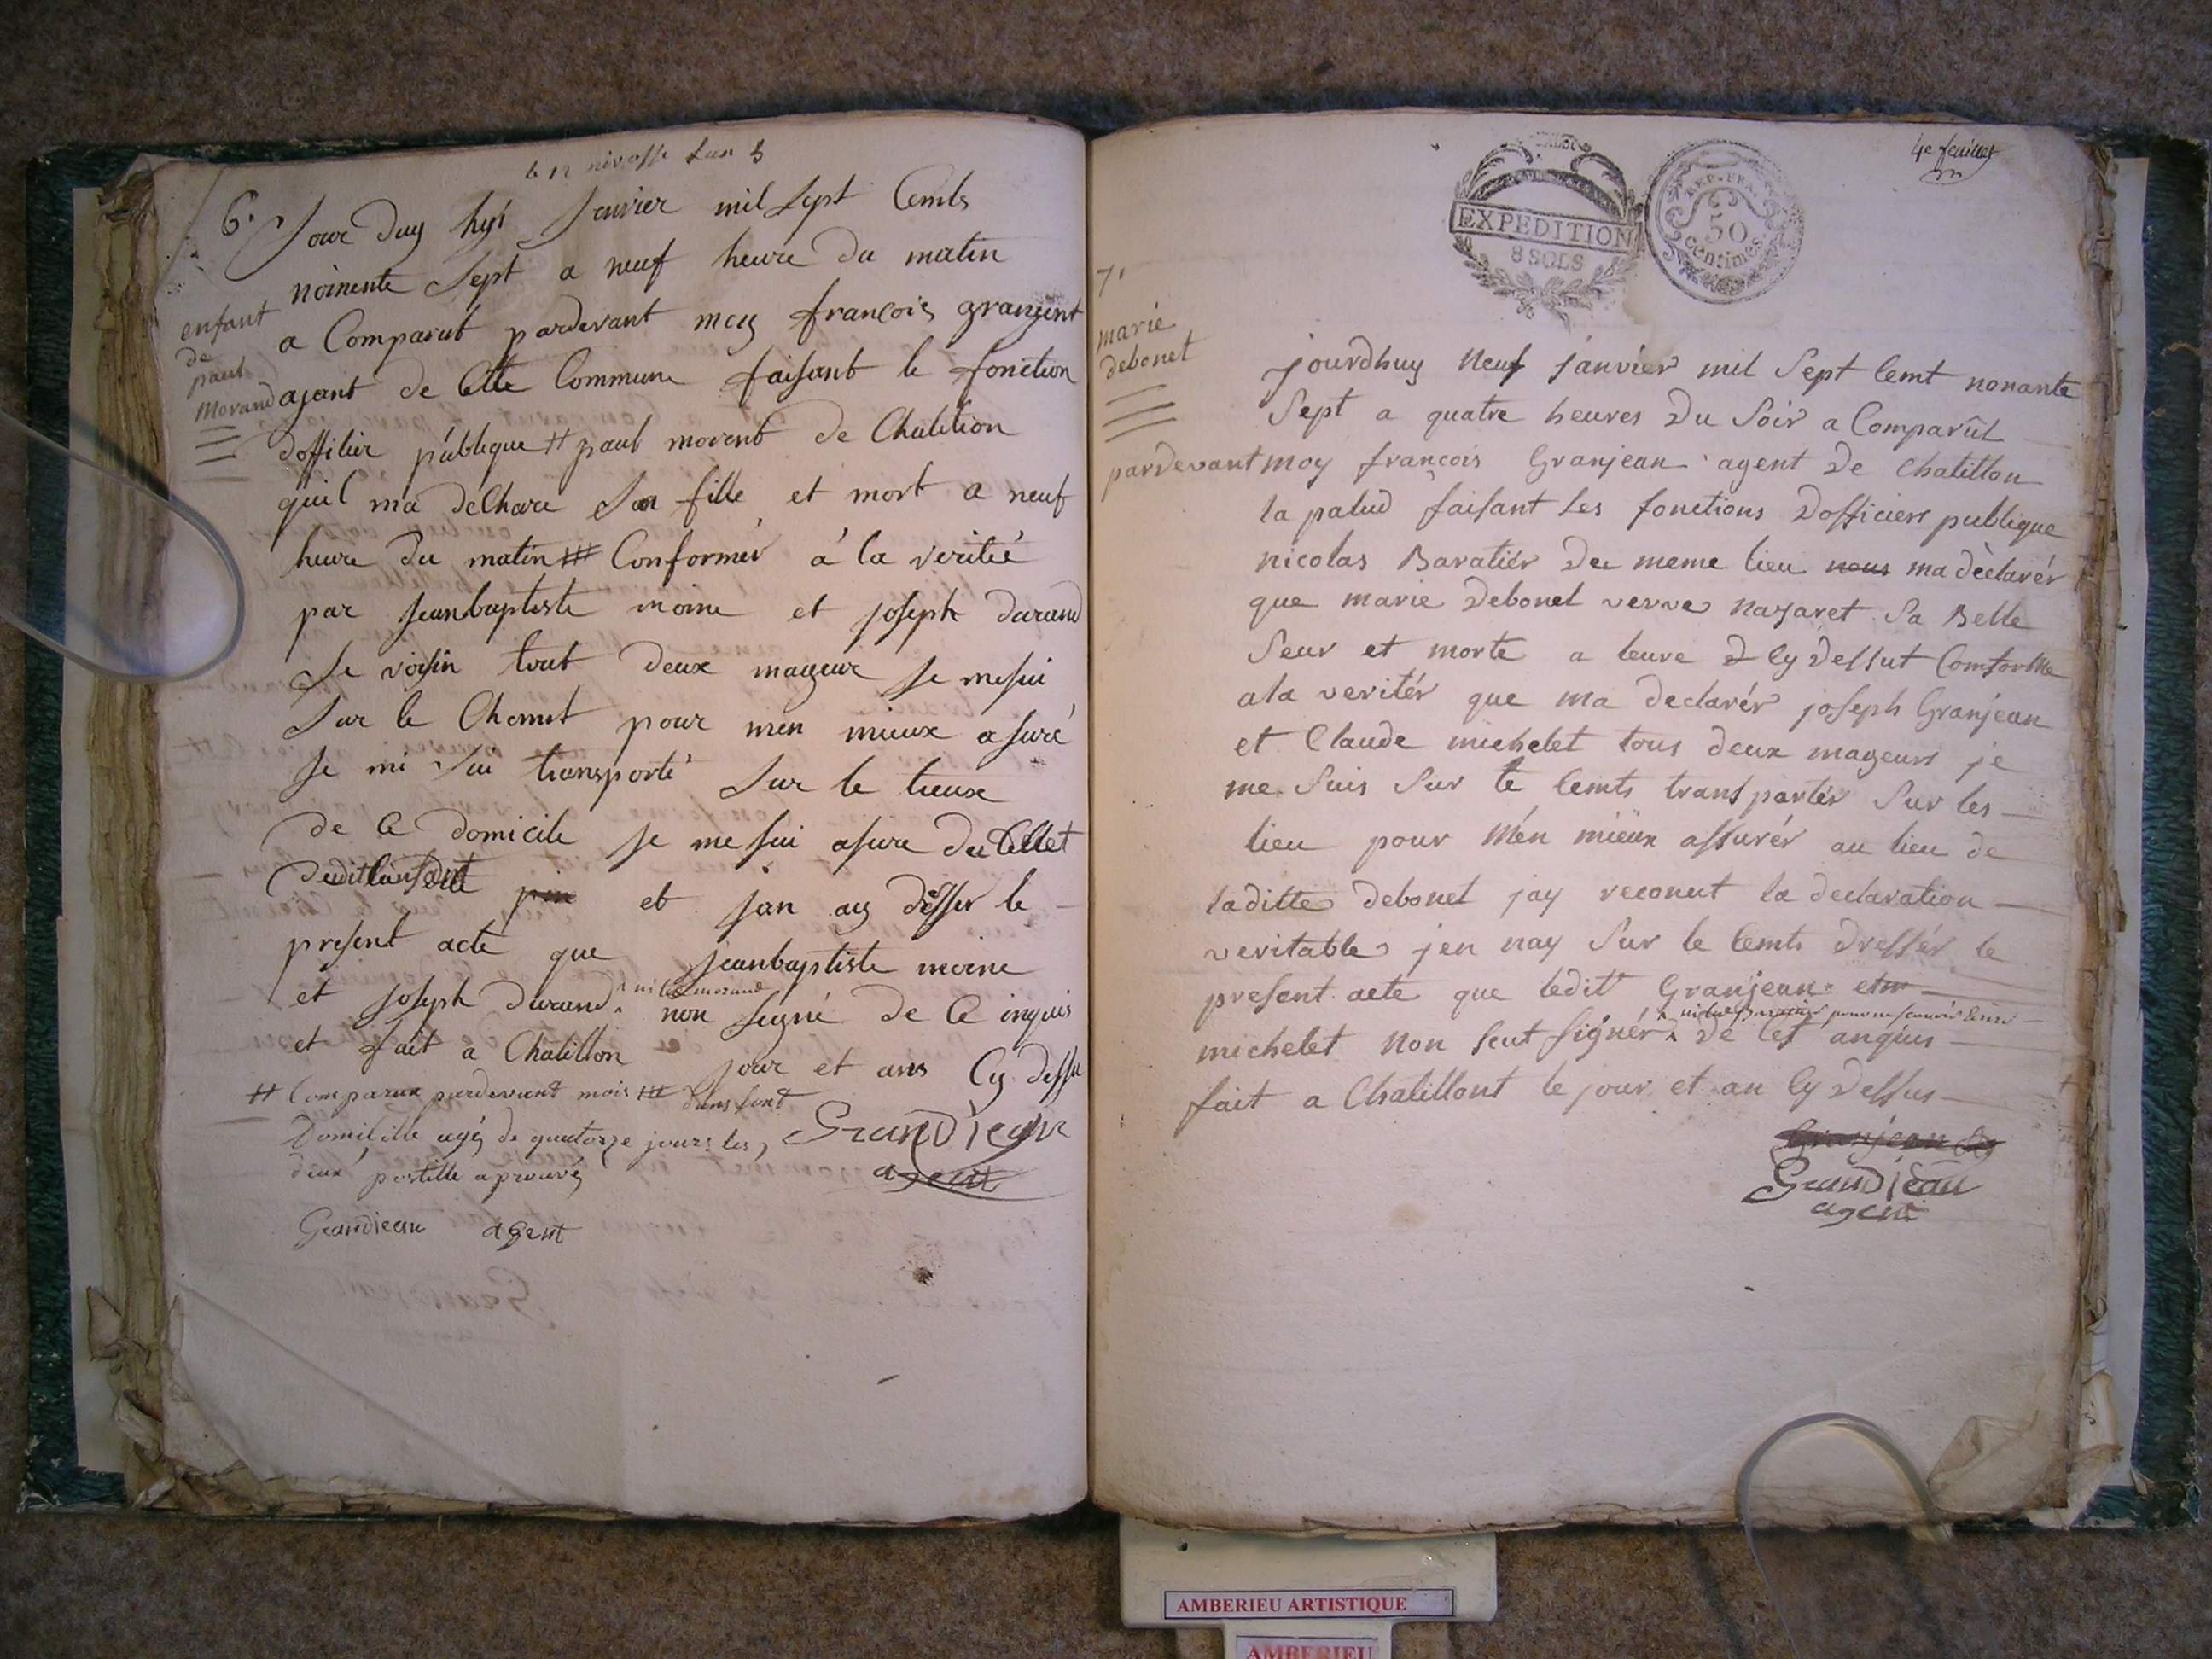 le 12 nivosse l'an 5
6.
Jour duy hyi Jenvier mil sept Cemts
noinente sept a neuf heure du matin
a Comparut pardevant moy françois granjent
enfant
de
paul
Morand
ajant de Cette Commune faisant le fonction
dofficier publique # paul morent de Chatition
quil ma delhare Son fille et mort a neuf
heure du matin ## Conformér à la veritié
par jeanbaptiste moine et joseph durand
Se voisin tout deux mageur Je mesui
Sur le Chemt pour men mieux asuré
Je mi Sui transporté Sur le lieux
de Ce domicile Je me sui asure du Cellet
duditlansent et jan ay desser le
present acte que jeanbaptiste moine
ni le morand
et joseph durand non signé de Ce inquis
et fait a Chatillon jour et ans Cy dessu
# Comparux pardevant mois ## dans sont
Domicille agé de quatorze jours les,
deux postille aprouvé
Grandjean
agent
Grandjean agent
4e feuillet
EXPEDITION
8 SOLS
REP. FRA.
50
Centimes.
7.
marie
debonet
jourdhuy Neuf janvier mil Sept Cemt nonante
Sept a quatre heures Du Soir a Comparût
pardevant moy françois Granjean agent De Chatillon
la palud faisant Les fonctions Dofficiers publique
nicolas Baratiér Du meme lieu nous ma dèclarér
que marie Debonet verve Nazaret Sa Belle
Seur et morte a leure D Cy Dessut Comforme
ala veritér que ma declarér joseph Granjean
et Claude michelet tous deux mageurs je
me Suis Sur le Cemts transpartér Sur les
lieu pour mén mieux assurér au lieu de
laditte Debonet jay reconut la declaration
veritable jen nay Sur le Cemts Dressér le
present acte que ledit Granjean et
nicolas Baratier pour ne scavoir Ecrire
michelet Non seut signér De Cet anquis
fait a Chatillont le jour et an Cy Dessus
Granjean
Grandjean
agent
AMBERIEU ARTISTIQUE
AMBERIEU